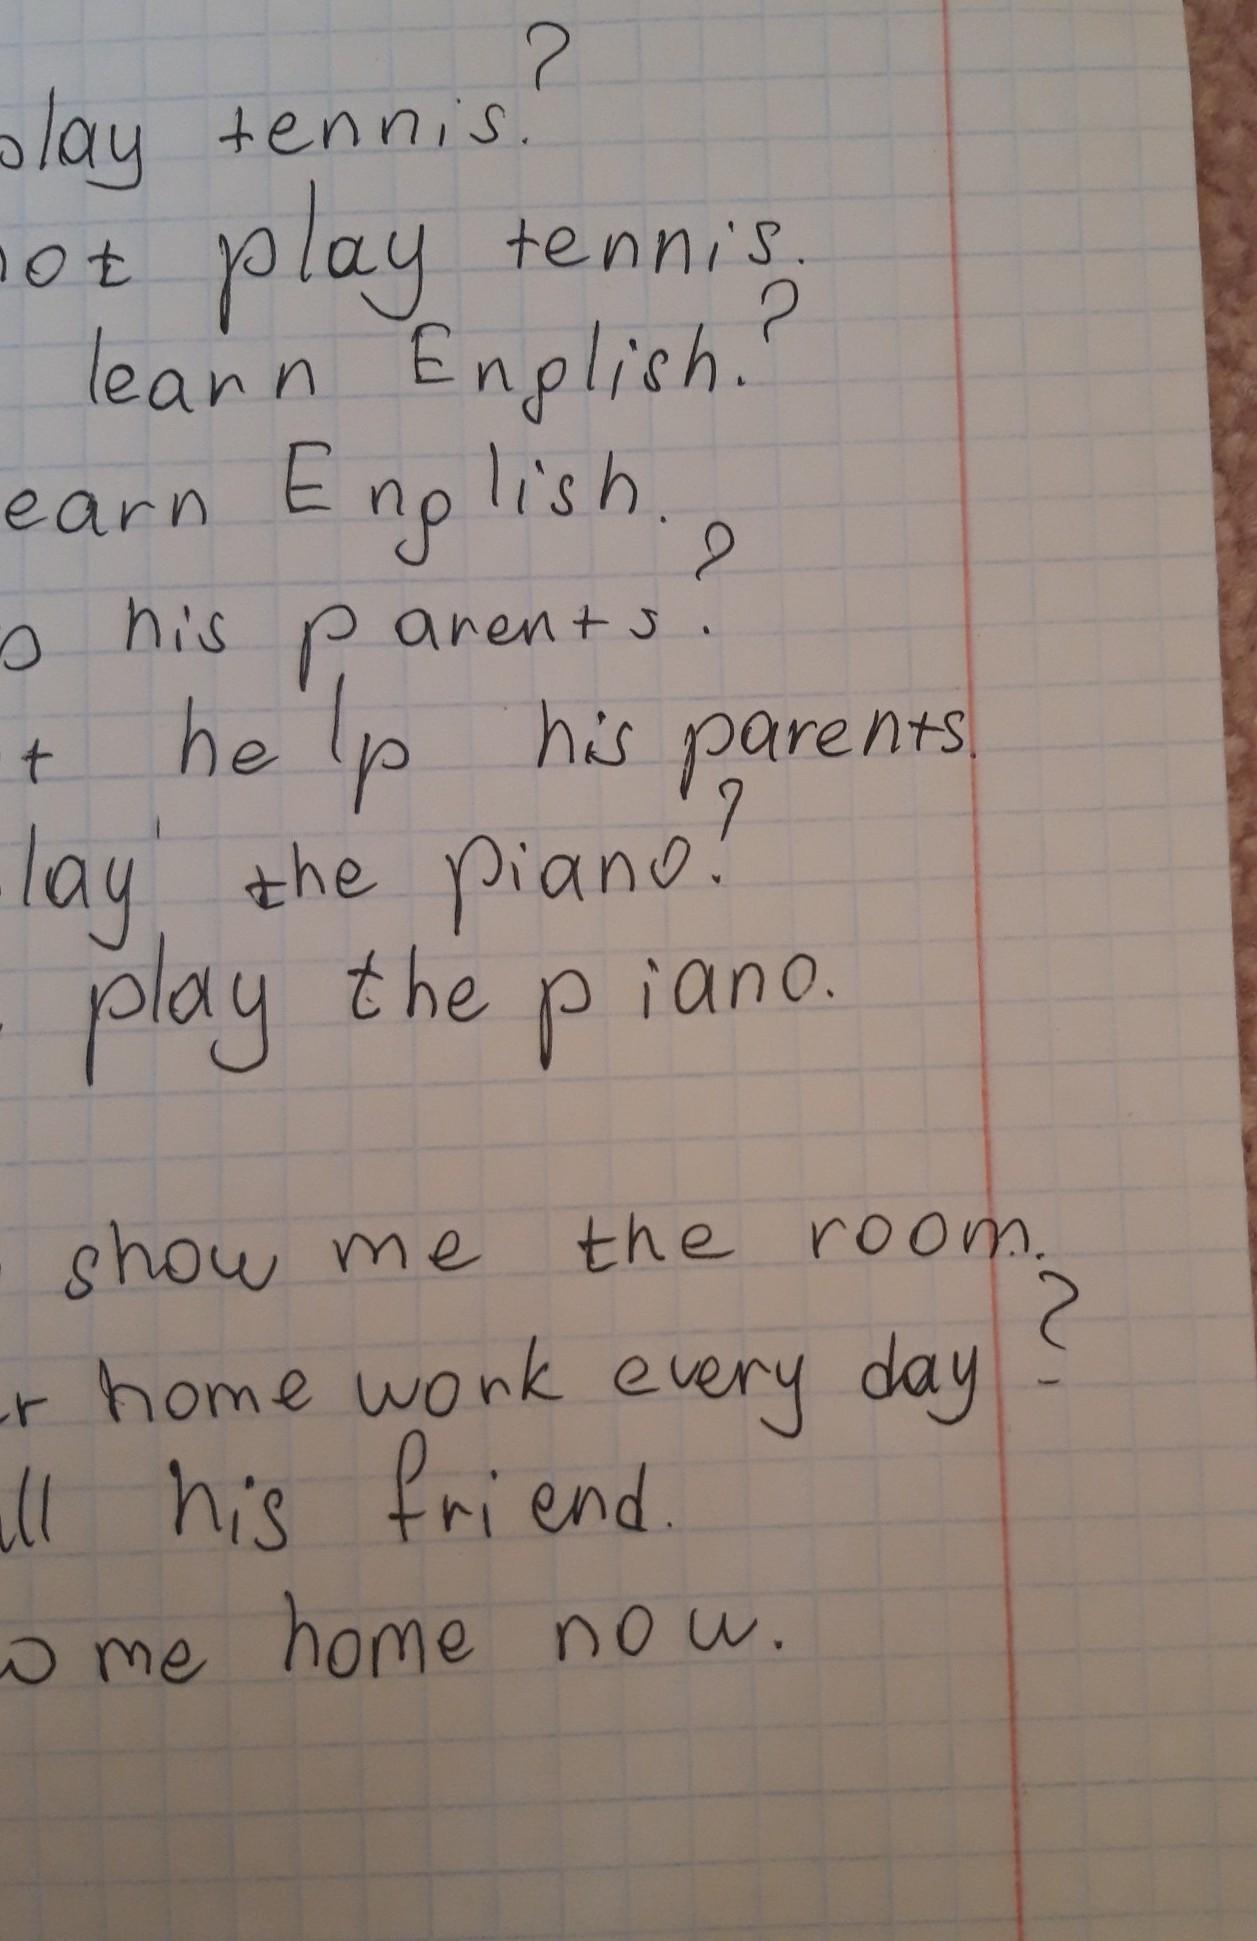 play tennis?
not play tennis.
learn English?
earn English.
his parents?
help his parents.
lay the piano?
play the piano.
show me the room.
r home work every day?
ll his friend.
ome home now.